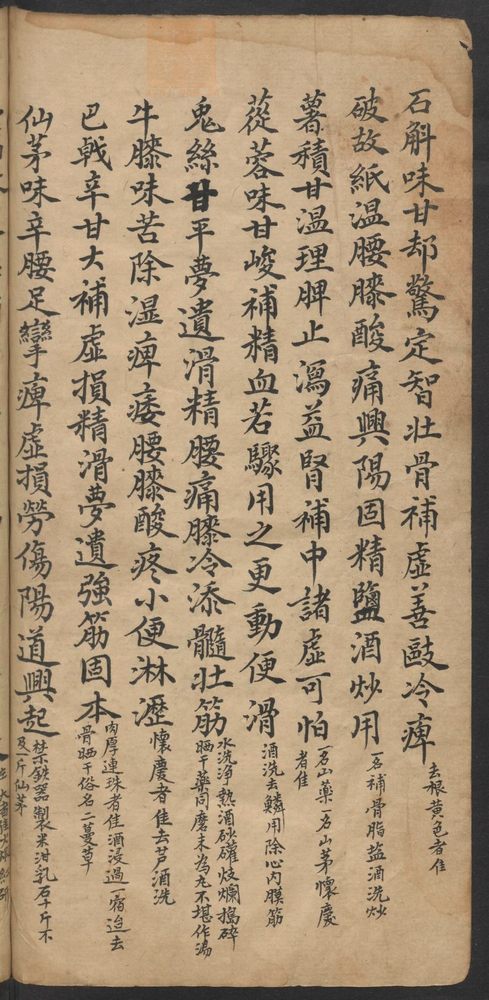 石斛味甘却驚定智壯骨補虛善敺冷痺 去根黃色者佳
破故紙温腰膝酸痛興陽固精鹽酒炒用 一名補骨脂盐酒洗炒
薯蕷甘温理脾止瀉益腎補中諸虛可怕 一名山藥一名山茅懷慶者佳
蓯蓉味甘峻補精血若驟用之更動便滑 酒洗去鱗用除心内膜筋
兔絲甘平夢遺滑精腰痛膝冷添髓壯筋 水洗净熱酒砂礶炆爛搗碎晒干藥同磨末为丸不堪作湯
牛膝味苦除湿痺痿腰膝酸疼小便淋瀝 懷慶者佳去芦酒洗
巴戟辛甘大補虛損精滑夢遺強筋固本 肉厚連珠者佳酒浸過一宿迨去骨晒干俗名二蔓草
仙茅味辛腰足攣痺虛損勞傷陽道興起 禁鉄器製米泔乳石十斤不及一斤仙茅